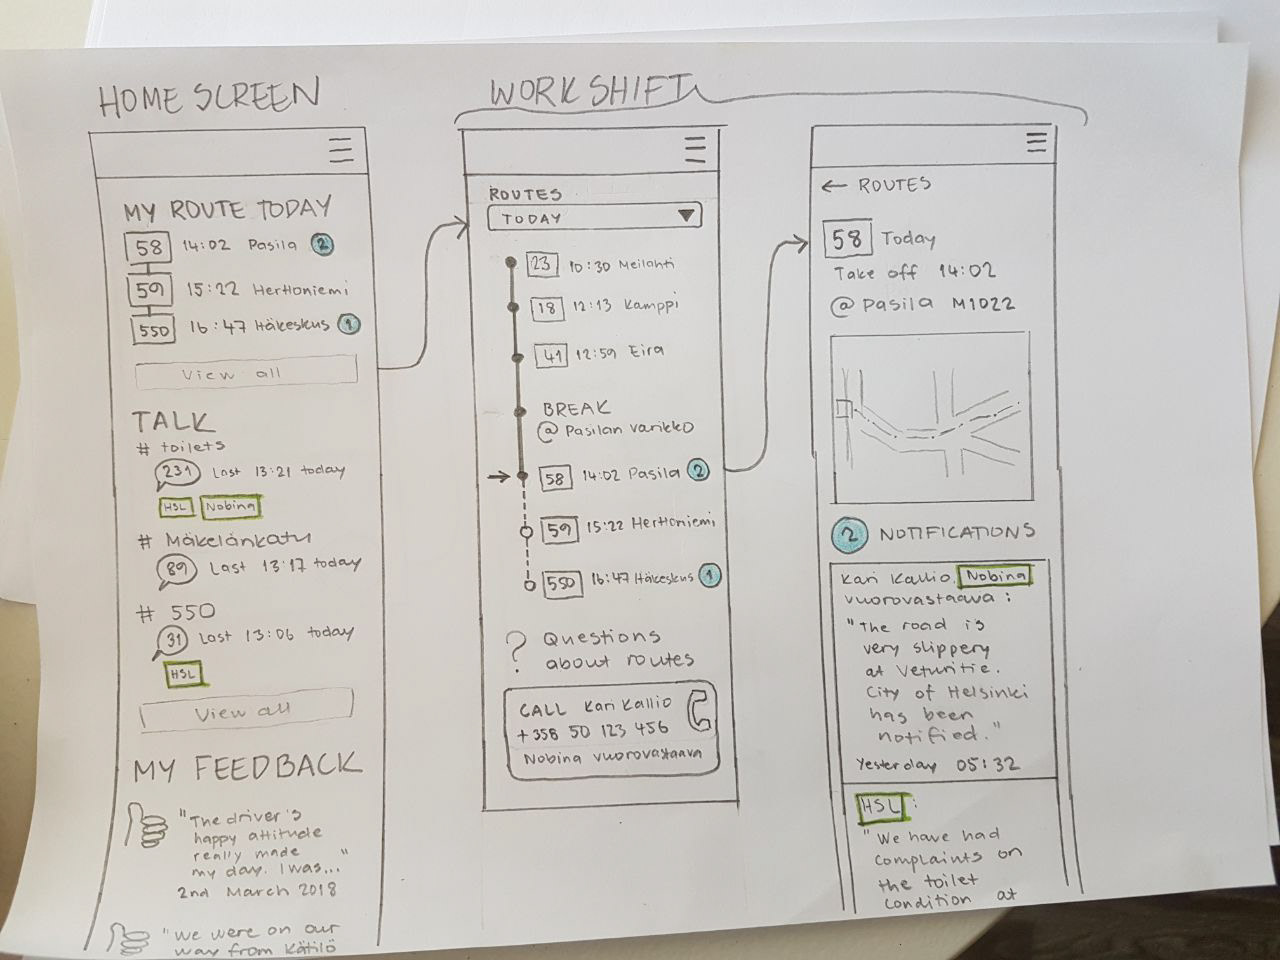 HOME SCREEN
MY ROUTE TODAY
58 14:02 Pasila 2
59 15:22 Herttoniemi
550 16:47 Häkeskus 1
View all
TALK
# toilets
231 Last 13:21 today
HSL Nobina
# Mäkelänkatu
89 Last 13:17 today
# 550
31 Last 13:06 today
HSL
View all
MY FEEDBACK
"The driver's
happy attitude
really made
my day. I was... "
2nd March 2018
"We were on our
way from Kätilö
WORK SHIFT
ROUTES
TODAY
23 10:30 Meilahti
18 12:13 Kamppi
41 12:59 Eira
BREAK
@ Pasilan varikko
58 14:02 Pasila 2
59 15:22 Herttoniemi
550 16:47 Häkeskus 1
? Questions
about routes
CALL Kari Kallio
+ 358 50 123 456
Nobina vuorovastaava
← ROUTES
58 Today
Take off 14:02
@ Pasila M1022
2 NOTIFICATIONS
Kari Kallio, Nobina
vuorovastaava :
"The road is
very slippery
at Veturitie.
City of Helsinki
has been
notified."
Yesterday 05:32
HSL :
"We have had
complaints on
the toilet
condition at